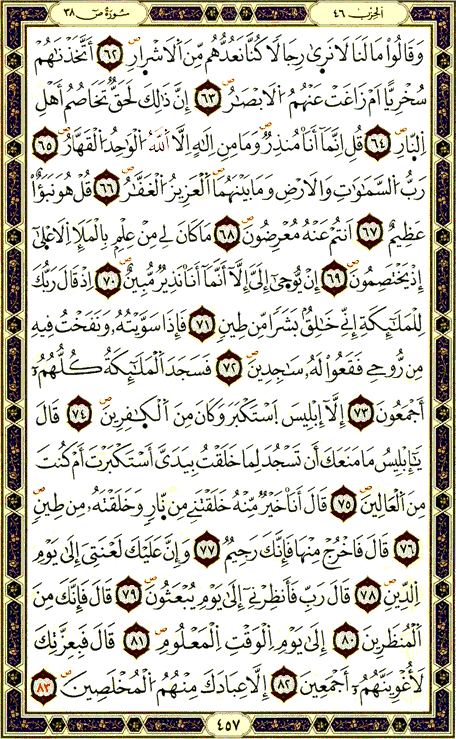 الحزب ٤٦
سورة ص ٣٨
وَقَالُوا۟ مَا لَنَا لَا نَرَىٰ رِجَالًا كُنَّا نَعُدُّهُم مِّنَ ٱلْأَشْرَارِ ٦٢ أَتَّخَذْنَٰهُمْ
سُخْرِيًّا أَمْ زَاغَتْ عَنْهُمُ ٱلْأَبْصَٰرُ ٦٣ إِنَّ ذَٰلِكَ لَحَقٌّ تَخَاصُمُ أَهْلِ
ٱلنَّارِ ٦٤ قُلْ إِنَّمَآ أَنَا۠ مُنذِرٌ وَمَا مِنْ إِلَٰهٍ إِلَّا ٱللَّهُ ٱلْوَٰحِدُ ٱلْقَهَّارُ ٦٥
رَبُّ ٱلسَّمَٰوَٰتِ وَٱلْأَرْضِ وَمَا بَيْنَهُمَا ٱلْعَزِيزُ ٱلْغَفَّٰرُ ٦٦ قُلْ هُوَ نَبَؤٌا۟
عَظِيمٌ ٦٧ أَنتُمْ عَنْهُ مُعْرِضُونَ ٦٨ مَا كَانَ لِي مِنْ عِلْمٍ بِٱلْمَلَإِ ٱلْأَعْلَىٰٓ
إِذْ يَخْتَصِمُونَ ٦٩ إِن يُوحَىٰٓ إِلَىَّ إِلَّآ أَنَّمَآ أَنَا۠ نَذِيرٌ مُّبِينٌ ٧٠ إِذْ قَالَ رَبُّكَ
لِلْمَلَٰٓئِكَةِ إِنِّي خَٰلِقٌۢ بَشَرًا مِّن طِينٍ ٧١ فَإِذَا سَوَّيْتُهُۥ وَنَفَخْتُ فِيهِ
مِن رُّوحِي فَقَعُوا۟ لَهُۥ سَٰجِدِينَ ٧٢ فَسَجَدَ ٱلْمَلَٰٓئِكَةُ كُلُّهُمُۥٓ
أَجْمَعُونَ ٧٣ إِلَّآ إِبْلِيسَ ٱسْتَكْبَرَ وَكَانَ مِنَ ٱلْكَٰفِرِينَ ٧٤ قَالَ
يَٰٓإِبْلِيسُ مَا مَنَعَكَ أَن تَسْجُدَ لِمَا خَلَقْتُ بِيَدَىَّ أَسْتَكْبَرْتَ أَمْ كُنتَ
مِنَ ٱلْعَالِينَ ٧٥ قَالَ أَنَا۠ خَيْرٌ مِّنْهُ خَلَقْتَنِي مِن نَّارٍ وَخَلَقْتَهُۥ مِن طِينٍ
٧٦ قَالَ فَٱخْرُجْ مِنْهَا فَإِنَّكَ رَجِيمٌ ٧٧ وَإِنَّ عَلَيْكَ لَعْنَتِيَ إِلَىٰ يَوْمِ
ٱلدِّينِ ٧٨ قَالَ رَبِّ فَأَنظِرْنِيٓ إِلَىٰ يَوْمِ يُبْعَثُونَ ٧٩ قَالَ فَإِنَّكَ مِنَ
ٱلْمُنظَرِينَ ٨٠ إِلَىٰ يَوْمِ ٱلْوَقْتِ ٱلْمَعْلُومِ ٨١ قَالَ فَبِعِزَّتِكَ
لَأُغْوِيَنَّهُمُۥٓ أَجْمَعِينَ ٨٢ إِلَّا عِبَادَكَ مِنْهُمُ ٱلْمُخْلَصِينَ ٨٣
٤٥٧